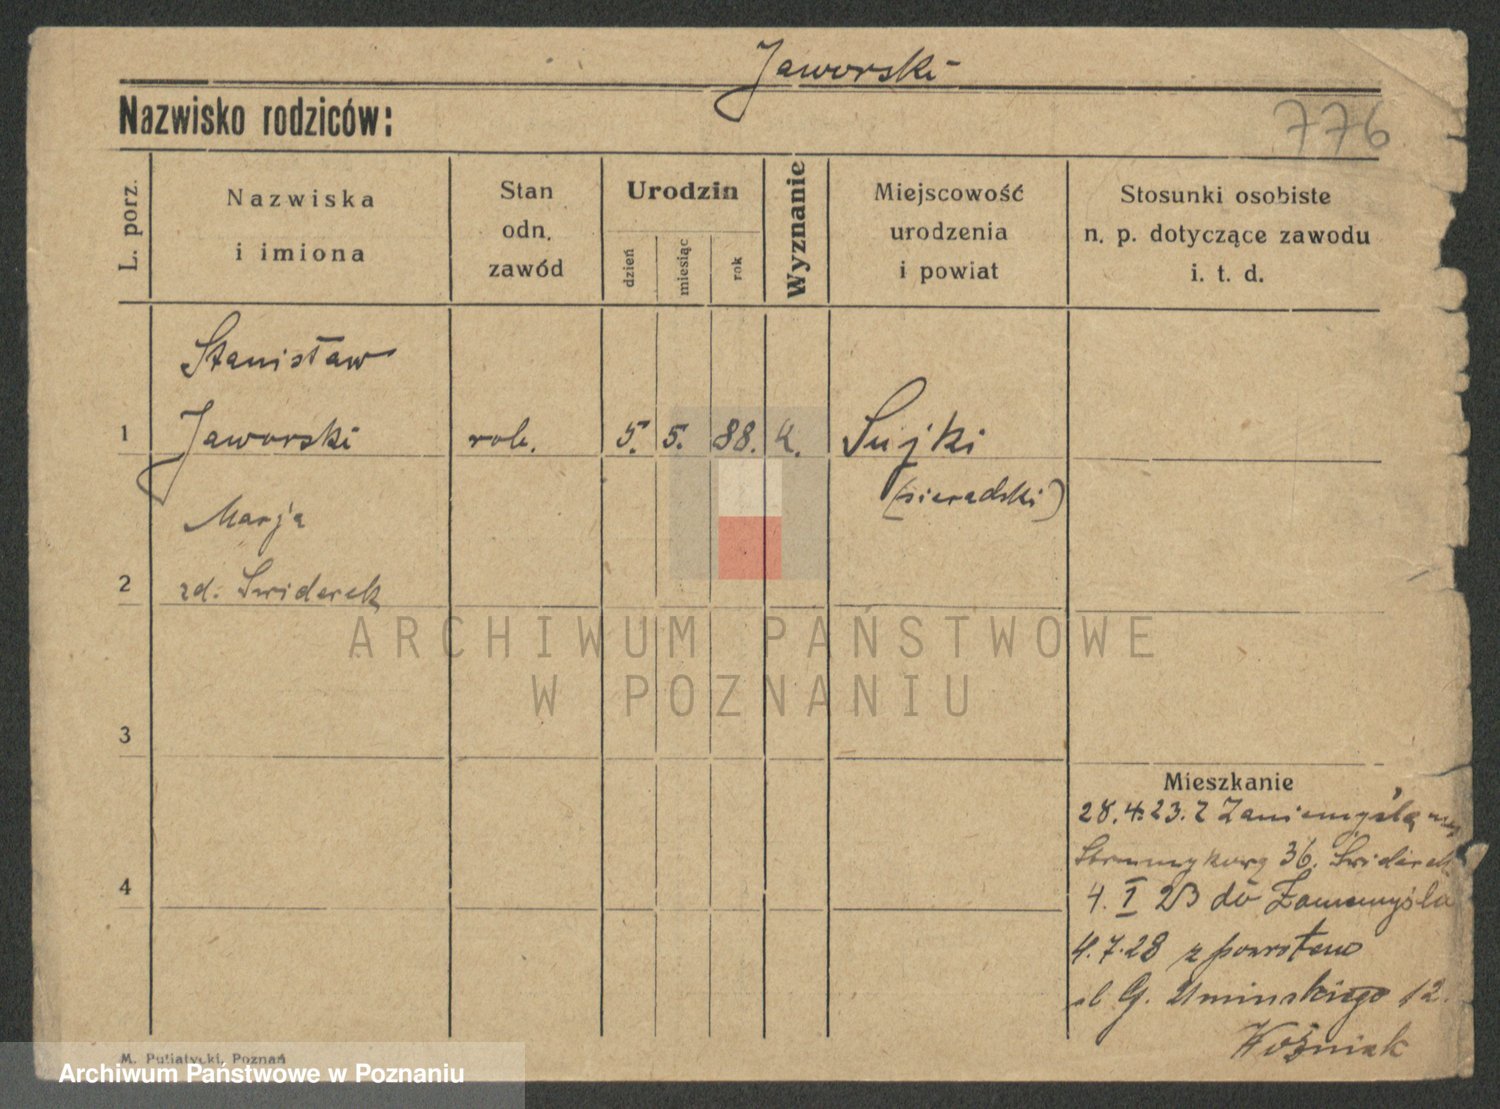 Jaworski
Nazwisko rodziców:
776
L. porz.
Nazwiska
i imiona
Stan
odn.
zawód
Urodzin
dzień
miesiąc
rok
Wyznanie
Miejscowość
urodzenia
i powiat
Stosunki osobiste
n. p. dotyczące zawodu
i. t. d.
Stanisław
1 Jaworski rob. 5. 5. 88. k. Sujki
(sieradski)
Marja
2 zd. Swiderek
ARCHIWUM PAŃSTWOWE
W POZNANIU
3
Mieszkanie
28.4.23. z Zaniemyśla
36. Swiderek
4
4. I 23 do Zaniemyśla
4.7.28 z powrotem
G. Uminskiego 12.
Woźniak
M. Putiatycki, Poznań
Archiwum Państwowe w Poznaniu